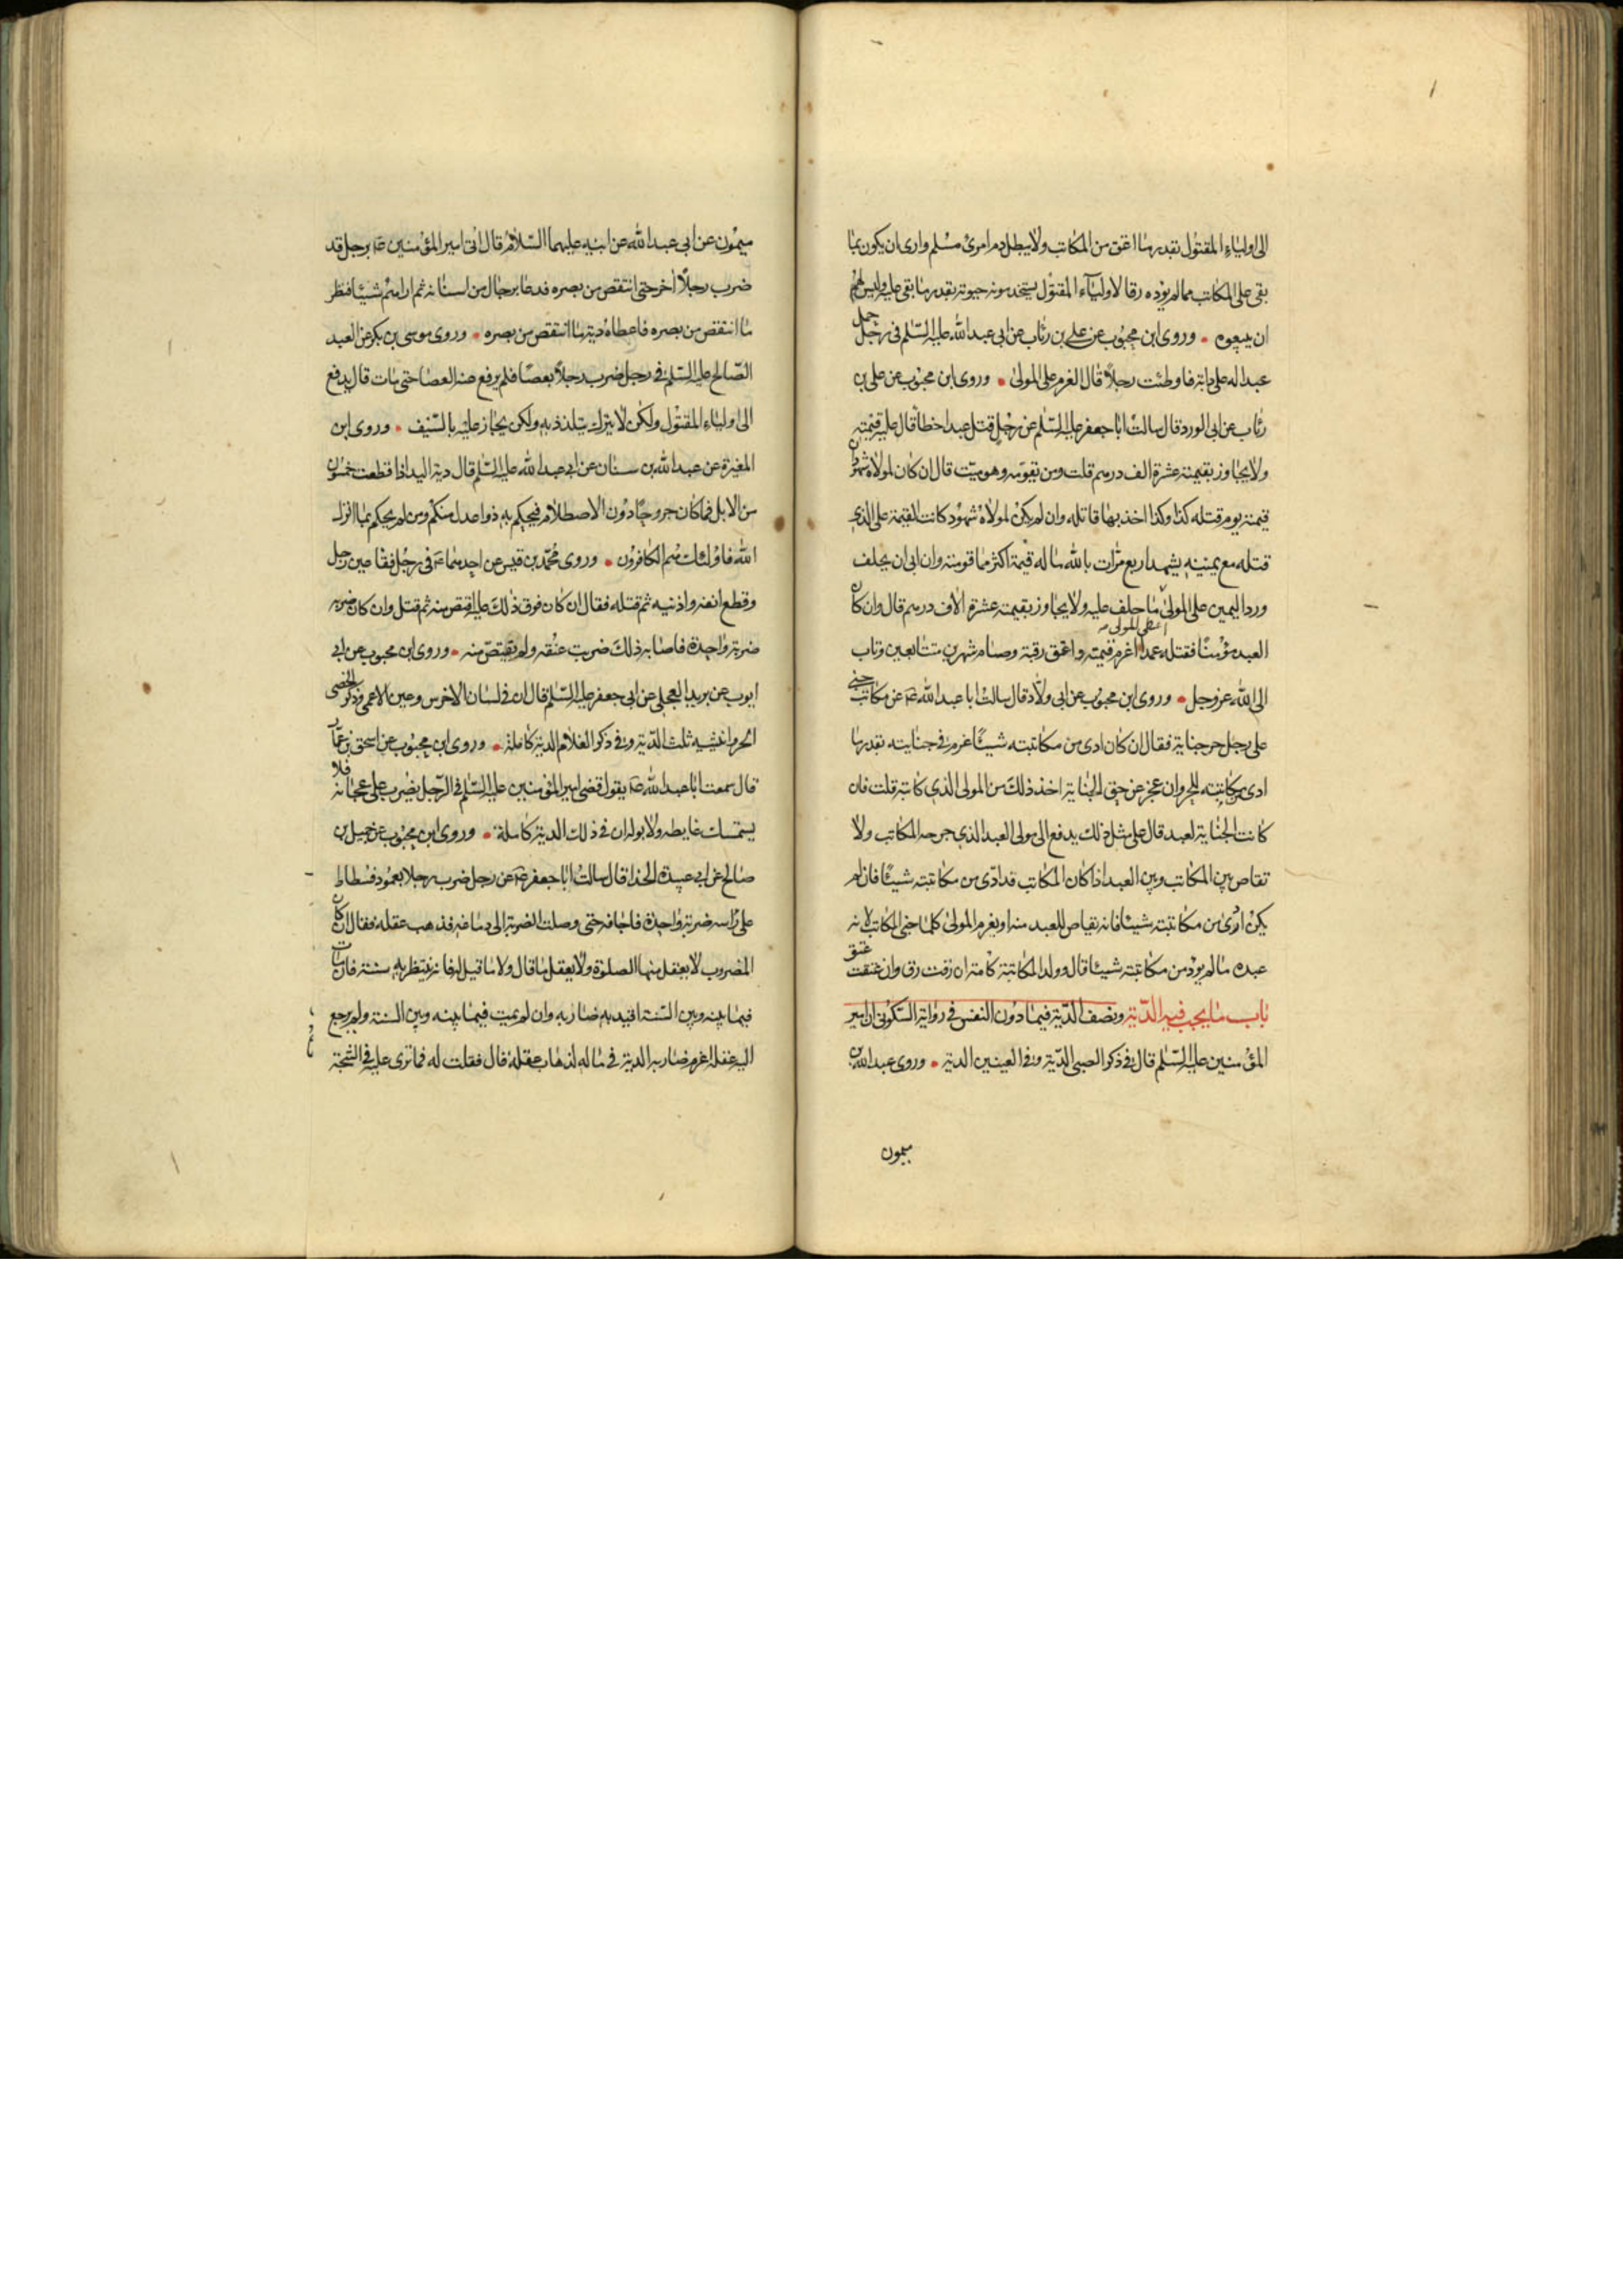 الى اولياء المقتول بقدر ما اعتق من المكاتب ولا يبطل دم امرئ مسلم وارى ان يكون بما
بقى على المكاتب مما لم يؤده رقا لاولياء المقتول يستخدمونه حيوته بقدر ما بقى عليه وليس لهم
ان يبيعوه • وروى ابن محبوب عن على بن رئاب عن ابى عبد الله عليه السّلم فى رجل حمل
عبدا له على دابته فاوطئت رجلاً قال الغرم على المولى • وروى ابن محبوب عن على بن
رئاب عن ابى الورد قال سالت ابا جعفر عليه السّلم عن رجل قتل عبدا خطأ قال عليه قيمته
ولا يجاوز بقيمته عشرة الف درهم قلت ومن يقومه وهو ميت قال ان كان لمولاه شهود ان
قيمته يوم قتله كذا وكذا اخذ بها قاتله وان لم يكن لمولاه شهود كانت القيمة على الذى
قتله مع يمينه يشهد اربع مرّات بالله ما له قيمة اكثر مما قومته وان ابى ان يحلف
ورد اليمين على المولى ما حلف عليه ولا يجاوز بقيمته عشرة الاف درهم قال وان كان
اعطى المولى
العبد مؤمنًا فقتله عمدا اغرم قيمته واعتق رقبة وصام شهرين متتابعين وتاب
الى الله عز وجل • وروى ابن محبوب عن ابى ولّاد قال سالت ابا عبد الله عن مكاتب جنى
على رجل حر جناية فقال ان كان ادى من مكاتبته شيئًا غرم فى جنايته بقدر ما
ادى من مكاتبته للحر وان عجز عن حق الجناية اخذ ذلك من المولى الذى كاتبه قلت فان
كانت الجناية لعبد قال على مثل ذلك يدفع الى مولى العبد الذى جرحه المكاتب ولا
تقاص بين المكاتب وبين العبد اذا كان المكاتب قد ادّى من مكاتبته شيئًا فان لم
يكن ادى من مكاتبته شيئا فانه يقاص للعبد منه او يغرم المولى كلما جنى المكاتب لانه
عبده ما لم يؤد من مكاتبته شيئا قال وولد المكاتبة كامّه ان رقت رق وان عتقت عتق
باب ما يجب فيه الدّية ونصف الدّية فيما دون النفس فى رواية السّكونى ان امير
المؤمنين عليه السّلم قال فى ذكر الصبى الدّية وفى العينين الدية • وروى عبد الله بن
ميمون
ميمون عن ابى عبد الله عن ابيه عليهما السّلام قال اتى امير المؤمنين برجل قد
ضرب رجلاً اخر حتى انتقص من بصره فدعا برجال من اسنانه ثم اراهم شيئا فنظر
ما انتقص من بصره فاعطاه دية ما انتقص من بصره • وروى موسى بن بكر عن العبد
الصّالح عليه السّلم فى رجل ضرب رجلاً بعصًا فلم يرفع عنه العصا حتى مات قال يدفع
الى اولياء المقتول ولكن لا يترك يتلذذ به ولكن يجاز عليه بالسّيف • وروى ابن
المغيرة عن عبد الله بن سنان عن ابى عبد الله عليه السّلم قال دية اليد اذا قطعت خمسون
من الابل فما كان جروحًا دون الاصطلام فيحكم به ذوا عدل منكم ومن لم يحكم بما انزل
الله فاولئك هم الكافرون • وروى محمّد بن قيس عن احدهما فى رجل فقا عين رجل
وقطع انفه واذنيه ثم قتله فقال ان كان فرق ذلك عليه اقتص منه ثم قتل وان كان ضربه
ضربة واحدة فاصابه ذلك ضربت عنقه ولم يقتصّ منه • وروى ابن محبوب عن ابى
ايوب عن بريد العجلى عن ابى جعفر عليه السّلم قال ان فى لسان الاخرس وعين الاعمى وذكر الخصى
الحر وانثييه ثلث الدّية وفى ذكر الغلام الدية كاملة • وروى ابن محبوب عن اسحق بن عمّار
قال سمعت ابا عبد الله يقول قضى امير المؤمنين عليه السّلم فى الرّجل يضرب على عجانه فلا
يستمسك غايطه ولا بوله ان فى ذلك الدية كاملة • وروى ابن محبوب عن جميل بن
صالح عن ابى عبيدة الحذا قال سالت ابا جعفر عن رجل ضرب رجلا بعمود فسطاط
على راسه ضربة واحدة فاجافه حتى وصلت الضربة الى دماغه فذهب عقله فقال ان كان
المضروب لا يعقل منها الصلوة ولا يعقل ما قال ولا ما قيل له فانه ينتظر به سنة فان مات
فيما بينه وبين السّنة اقيد به ضاربه وان لم يمت فيما بينه وبين السنة ولم يرجع
اليه عقله اغرم ضاربه الدية فى ماله لذهاب عقله قال فقلت له فما ترى عليه فى الشجّة